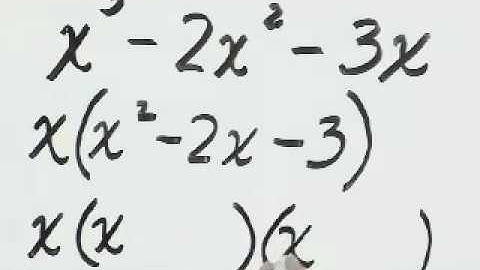 x³ - 2x² - 3x
x(x² - 2x - 3)
x(x )(x )